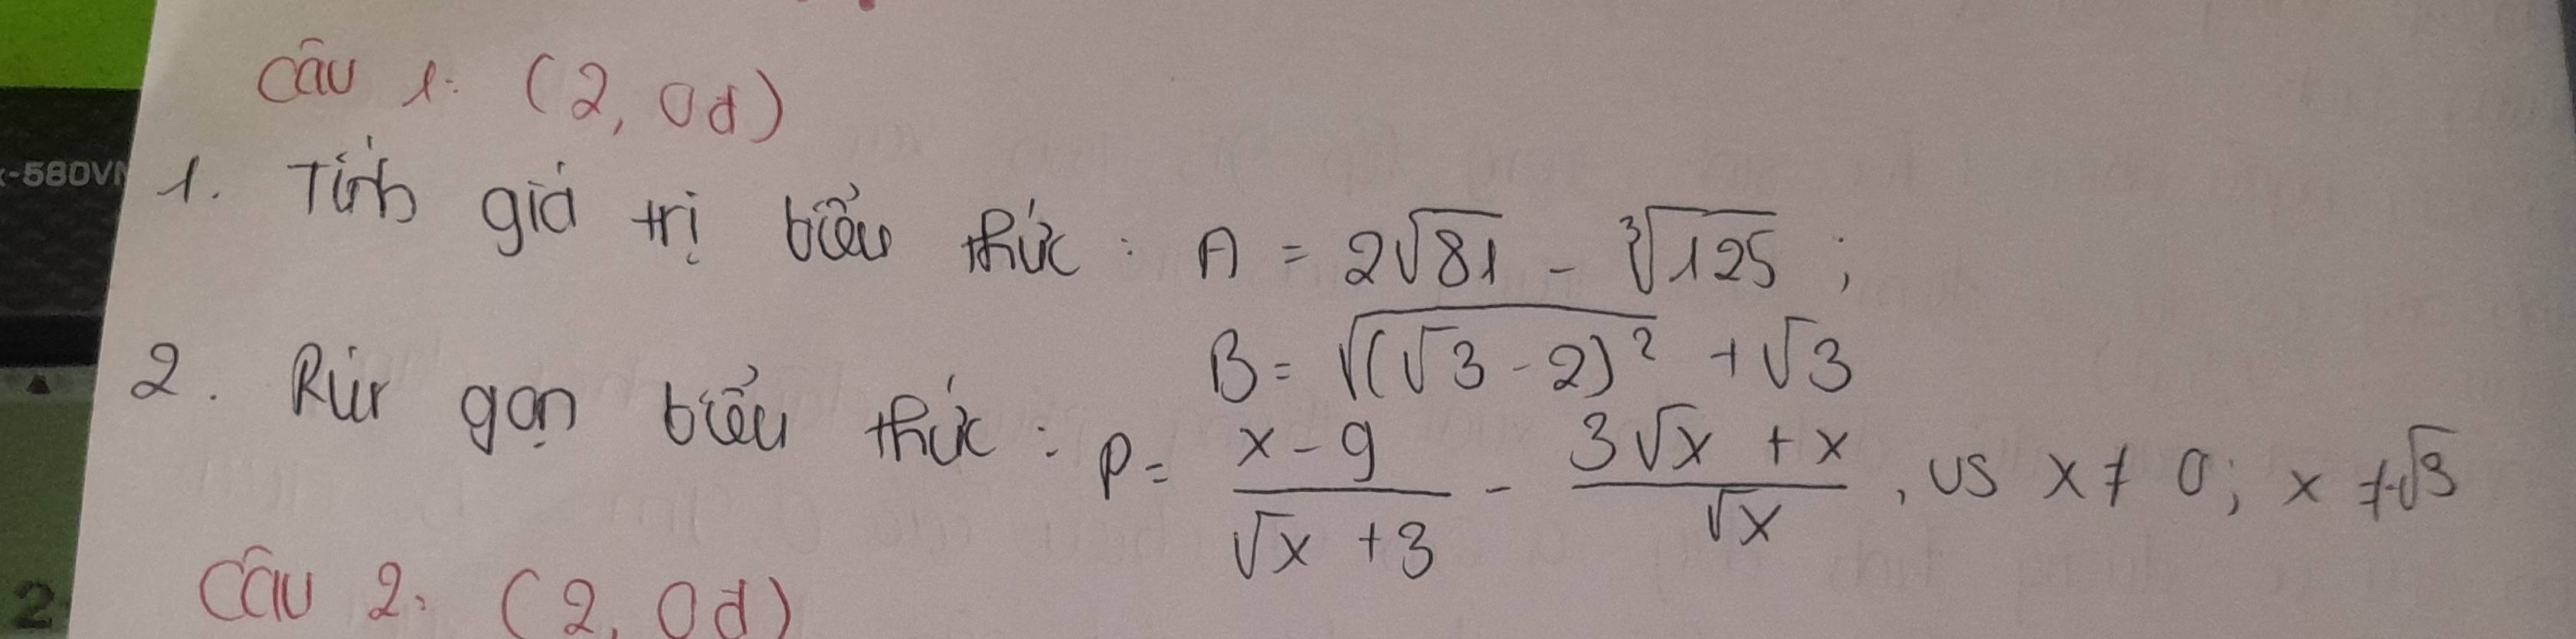 Câu 1: (2,0đ)
-580VN
1. Tính giá trị biểu thức: A = 2√81 - ∛125;
B = √((√3 - 2)²) + √3
2. Rút gọn biểu thức: P = (x - 9)/(√x + 3) - (3√x + x)/√x, vs x ≠ 0; x ≠ √3
Câu 2: (2,0đ)
2